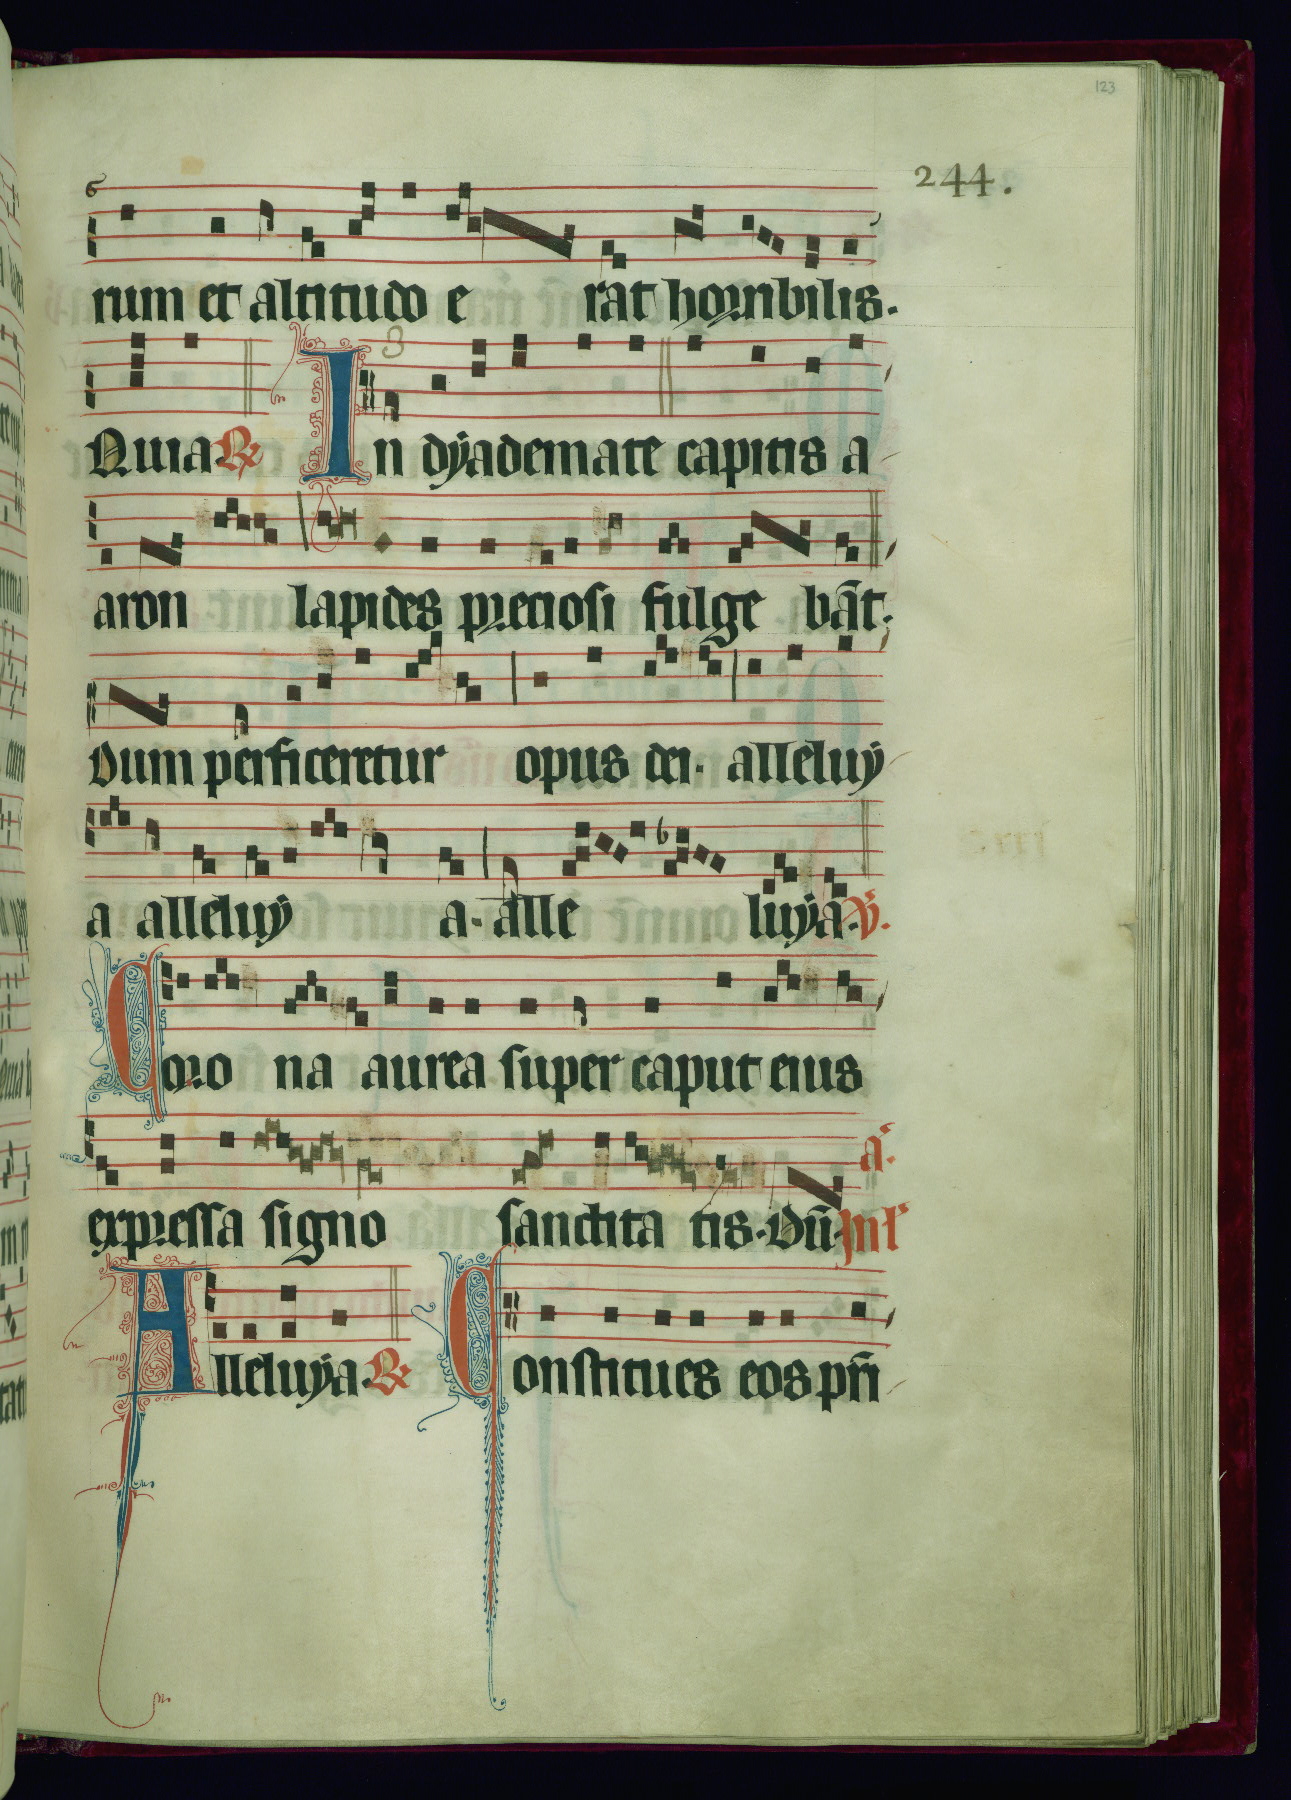 123
244.
6
rum et altitudo e rat horribilis.
3
Quia ℟ In dÿademate capitis a
aron lapides preciosi fulge bāt.
Dum perficeretur opus dei. alleluÿ
6
a alleluÿ a. alle luÿa. ℣.
Coro na aurea super caput eius
a̅.
expressa signo sanctita tis. Dū. In l̄
Alleluÿa. ℟ Constitues eos pr̄i